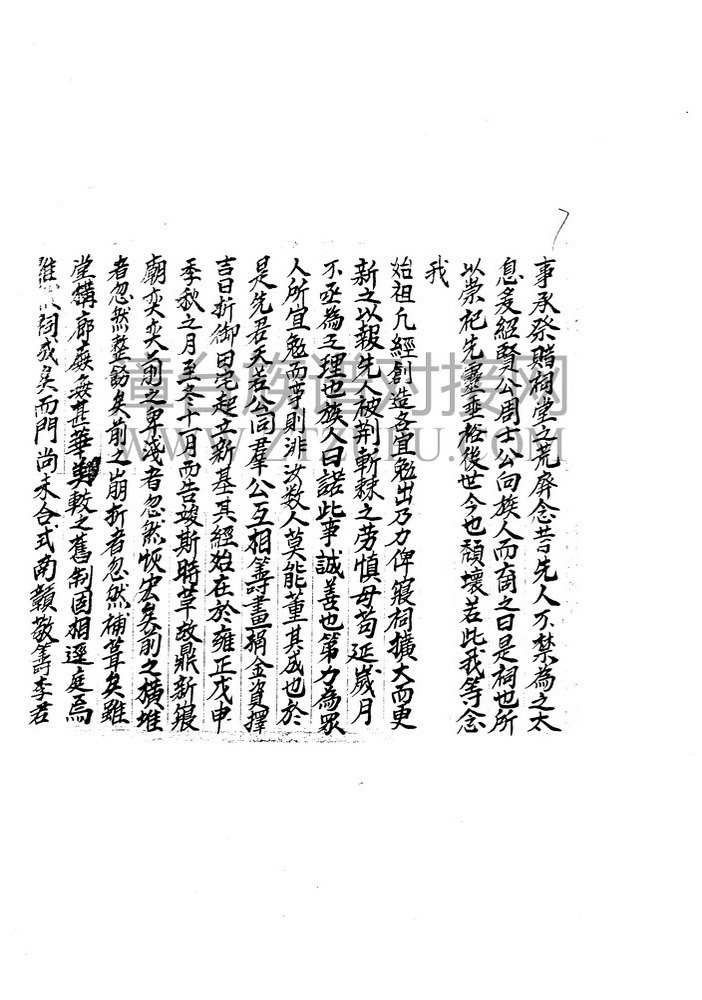 事承祭賭祠堂之荒廢念昔先人不禁為之太
息爰紹賢公周士公向族人而商之曰是祠也所
以崇祀先靈垂裕後世今也頹壞若此我等念
我
始祖凢經創造各宜勉出乃力俾寢祠擴大而更
新之以報先人被荆斬棘之劳慎毋苟延嵗月
不亟為之理也族人曰諾此事誠善也第力為眾
人所宜勉而事則非汝数人莫能董其成也於
是先君天若公同羣公互相籌畫捐金資擇
吉日折御田宅起立新基其經始在於雍正戊申
季秋之月至冬十一月而告竣斯時革故鼎新寢
廟奕奕前之卑淺者忽然恢宏矣前之横堆
者忽然整飭矣前之崩折者忽然補葺矣雖
堂構廊廡無甚華較之舊制固相逕庭焉
祠成矣而門尚未合式南顏敬籌李君
重台族谱对接网
WWW.ZTZUPU.COM